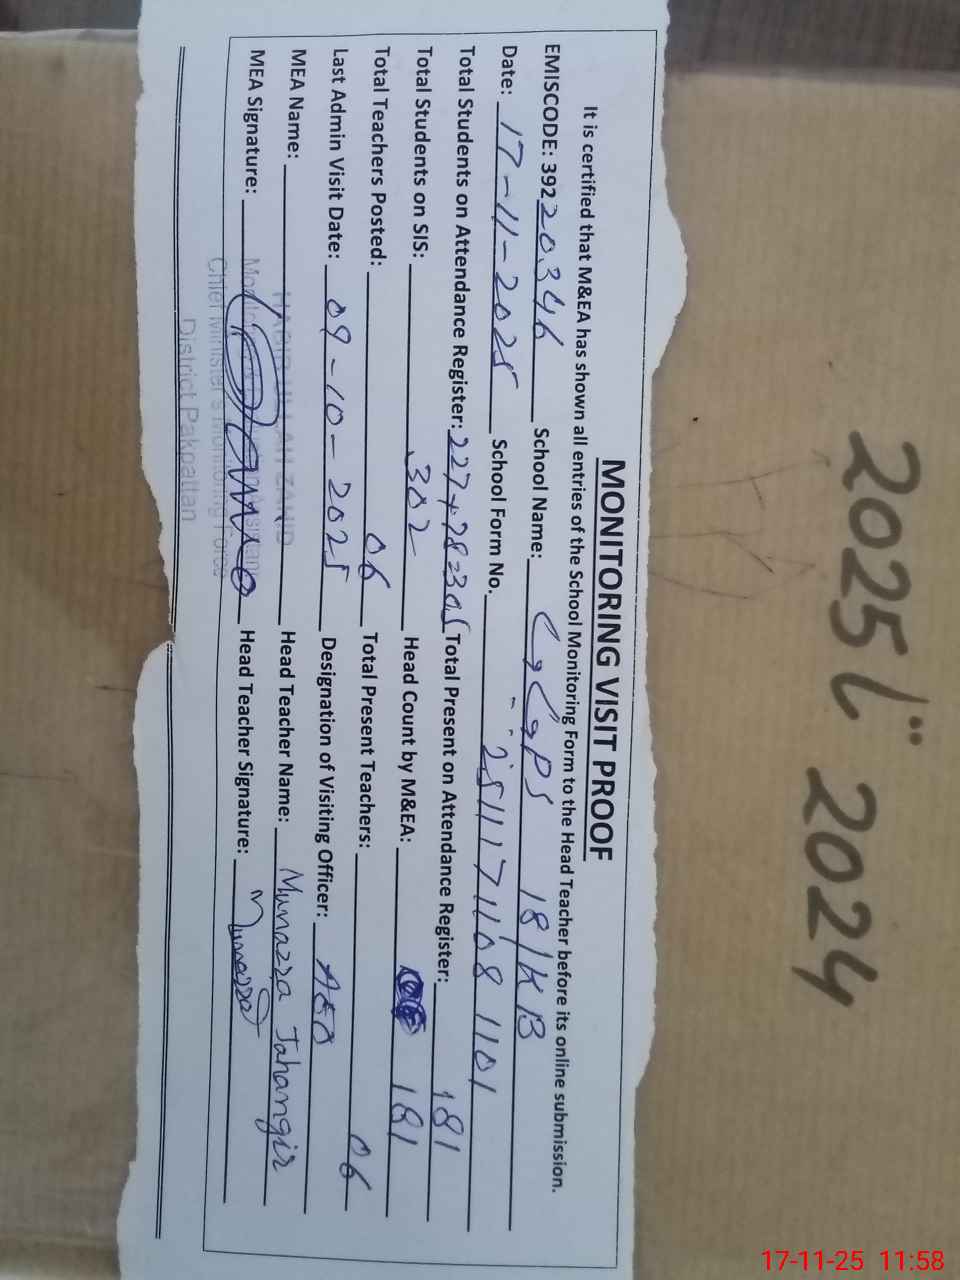 2025 تا 2024
MONITORING VISIT PROOF
It is certified that M&EA has shown all entries of the School Monitoring Form to the Head Teacher before its online submission.
EMISCODE: 39220346 School Name: GGPS 18/KB
Date: 17-11-2025 School Form No. 2511171108 1101
Total Students on Attendance Register: 227+78=305 Total Present on Attendance Register: 181
Total Students on SIS: 302 Head Count by M&EA: 181
Total Teachers Posted: 06 Total Present Teachers: 06
Last Admin Visit Date: 09-10-2025 Designation of Visiting Officer: AEO
MEA Name: HABIB ULLAH ZAHID Head Teacher Name: Munazza Jahangir
MEA Signature: Head Teacher Signature: Munazza
Chief Minister's Monitoring Force
District Pakpattan
17-11-25 11:58